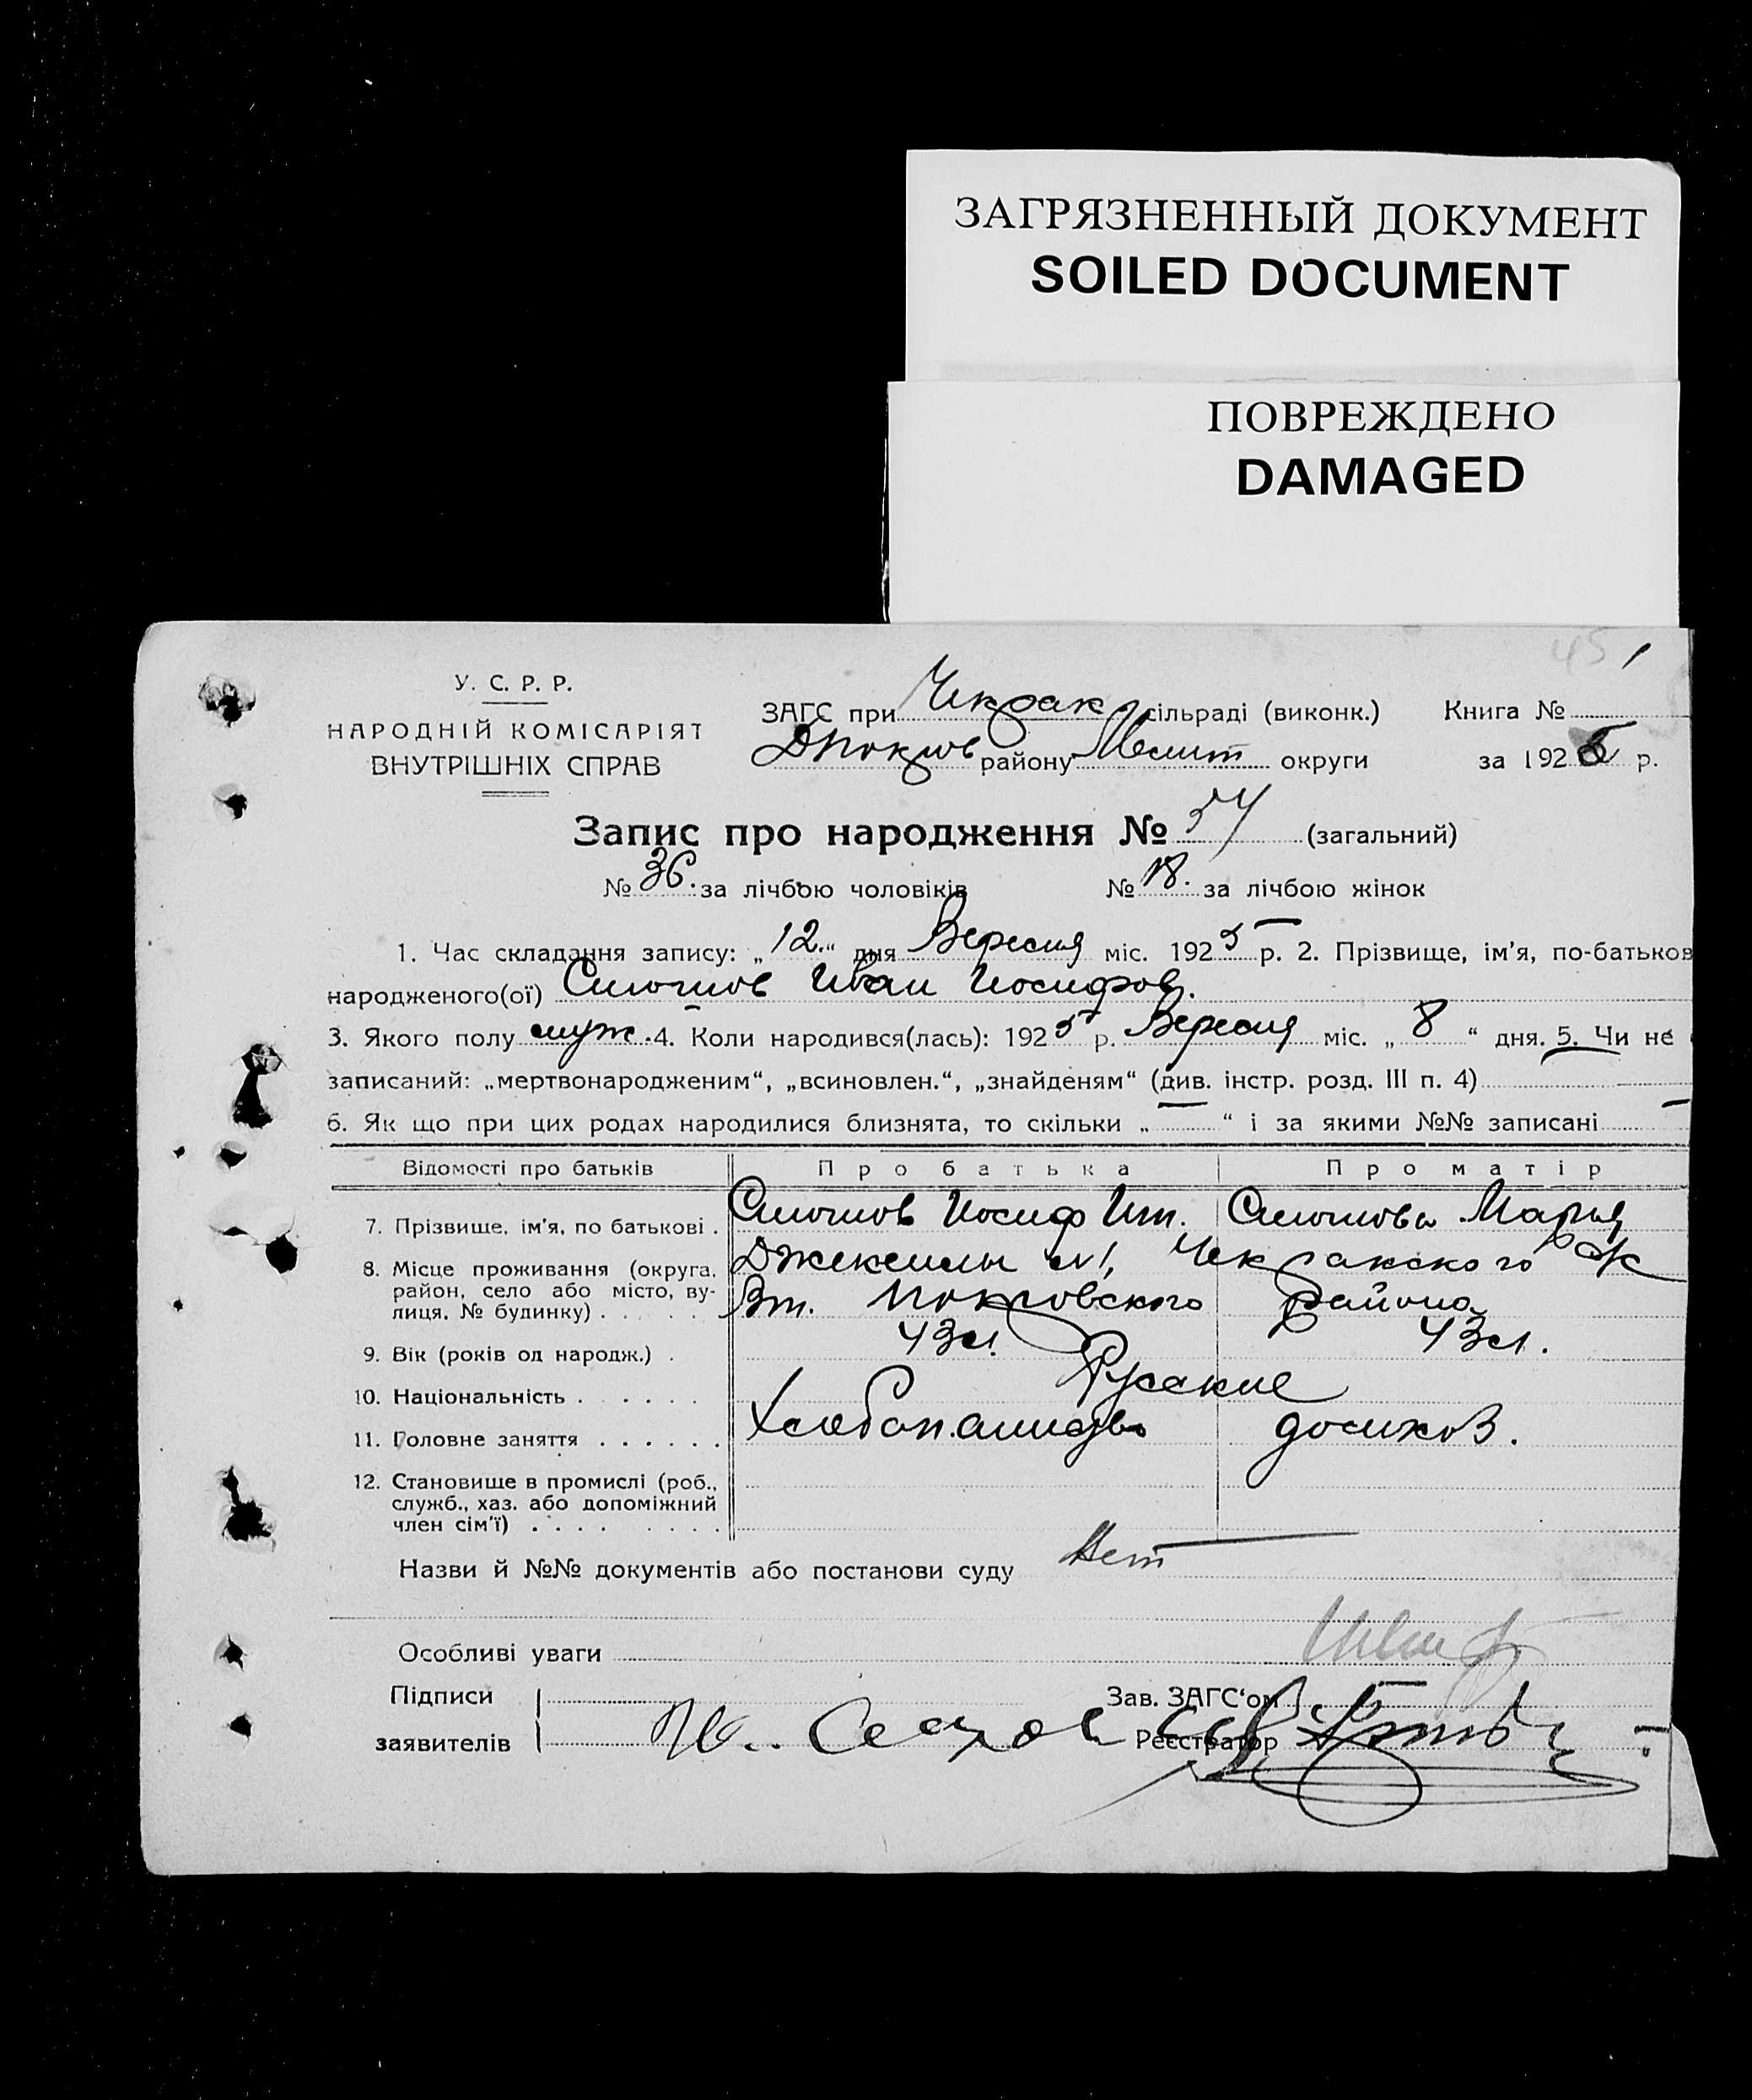 ЗАГРЯЗНЕННЫЙ ДОКУМЕНТ
SOILED DOCUMENT
ПОВРЕЖДЕНО
DAMAGED
45
У. С. Р. Р.
НАРОДНІЙ КОМІСАРІЯТ
ВНУТРІШНІХ СПРАВ
ЗАГС при Чекрак сільраді (виконк.) Книга №
району Мелит округи за 1925 р.
Запис про народження № 54 (загальний)
№ 36. за лічбою чоловіків № 18. за лічбою жінок
1. Час складання запису: „12.“ дня Вересня міс. 1925 р. 2. Прізвище, ім'я, по-батьков
народженого(ої) Иван Иосифов.
3. Якого полу муж. 4. Коли народився(лась): 1925 р. Вересня міс. „8“ дня. 5. Чи не
записаний: „мертвонародженим“, „всиновлен.“, „знайденям“ (див. інстр. розд. III п. 4)
6. Як що при цих родах народилися близнята, то скільки „—“ і за якими №№ записані —
Відомості про батьків Про батька Про матір
7. Прізвище, ім'я, по батькові . Иосиф Марья
8. Місце проживання (округа, Чекракского
район, село або місто, ву- Вт. Покровского района
лиця, № будинку) . . . . .
9. Вік (років од народж.) . 43 л. 43 л.
10. Національність . . . . . . Русские
11. Головне заняття . . . . . . домхоз.
12. Становище в промислі (роб.,
служб., хаз. або допоміжний
член сім'ї) . . . . . . . .
Назви й №№ документів або постанови суду Нет
Особливі уваги
Підписи Зав. ЗАГС'ом
заявителів Реєстратор